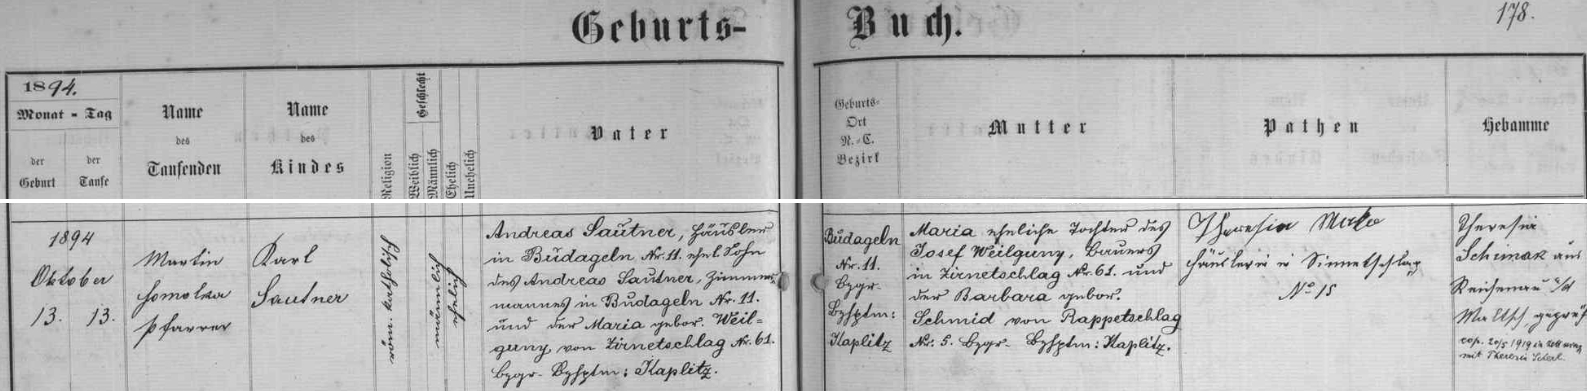 Geburts-Buch.
178.
1894.
Monat - Tag
der Geburt
der Taufe
Name des Taufenden
Name des Kindes
Religion
Geschlecht
Weiblich
Männlich
Ehelich
Unehelich
Vater
Geburts-Ort N.-C. Bezirk
Mutter
Pathen
Hebamme
1894
Oktober
13. 13.
Martin
Homolka
Pfarrer
Karl
Sautner
röm. katholisch
männlich
ehelich
Andreas Sautner, Häusler
in Büdageln Nr. 11. ehel. Sohn
des Andreas Sautner, Zimmer-
mannes in Büdageln Nr. 11.
und der Maria gebor. Weil-
guny, von Zirnetschlag Nr. 61.
Bzgr. Bzhptm: Kaplitz.
Büdageln
Nr. 11.
Bzgr.
Bzhptm:
Kaplitz
Maria eheliche Tochter des
Josef Weilguny, Bauers
in Zirnetschlag Nr. 61. und
der Barbara gebor.
Schmid von Rappetschlag
Nr. 5. Bzgr. Bzhptm: Kaplitz.
Theresia
Häuslerin in
No 15
Theresia
Schimak aus
Maltsch geprüft
cop. 20/5 1919 in
mit Theresia